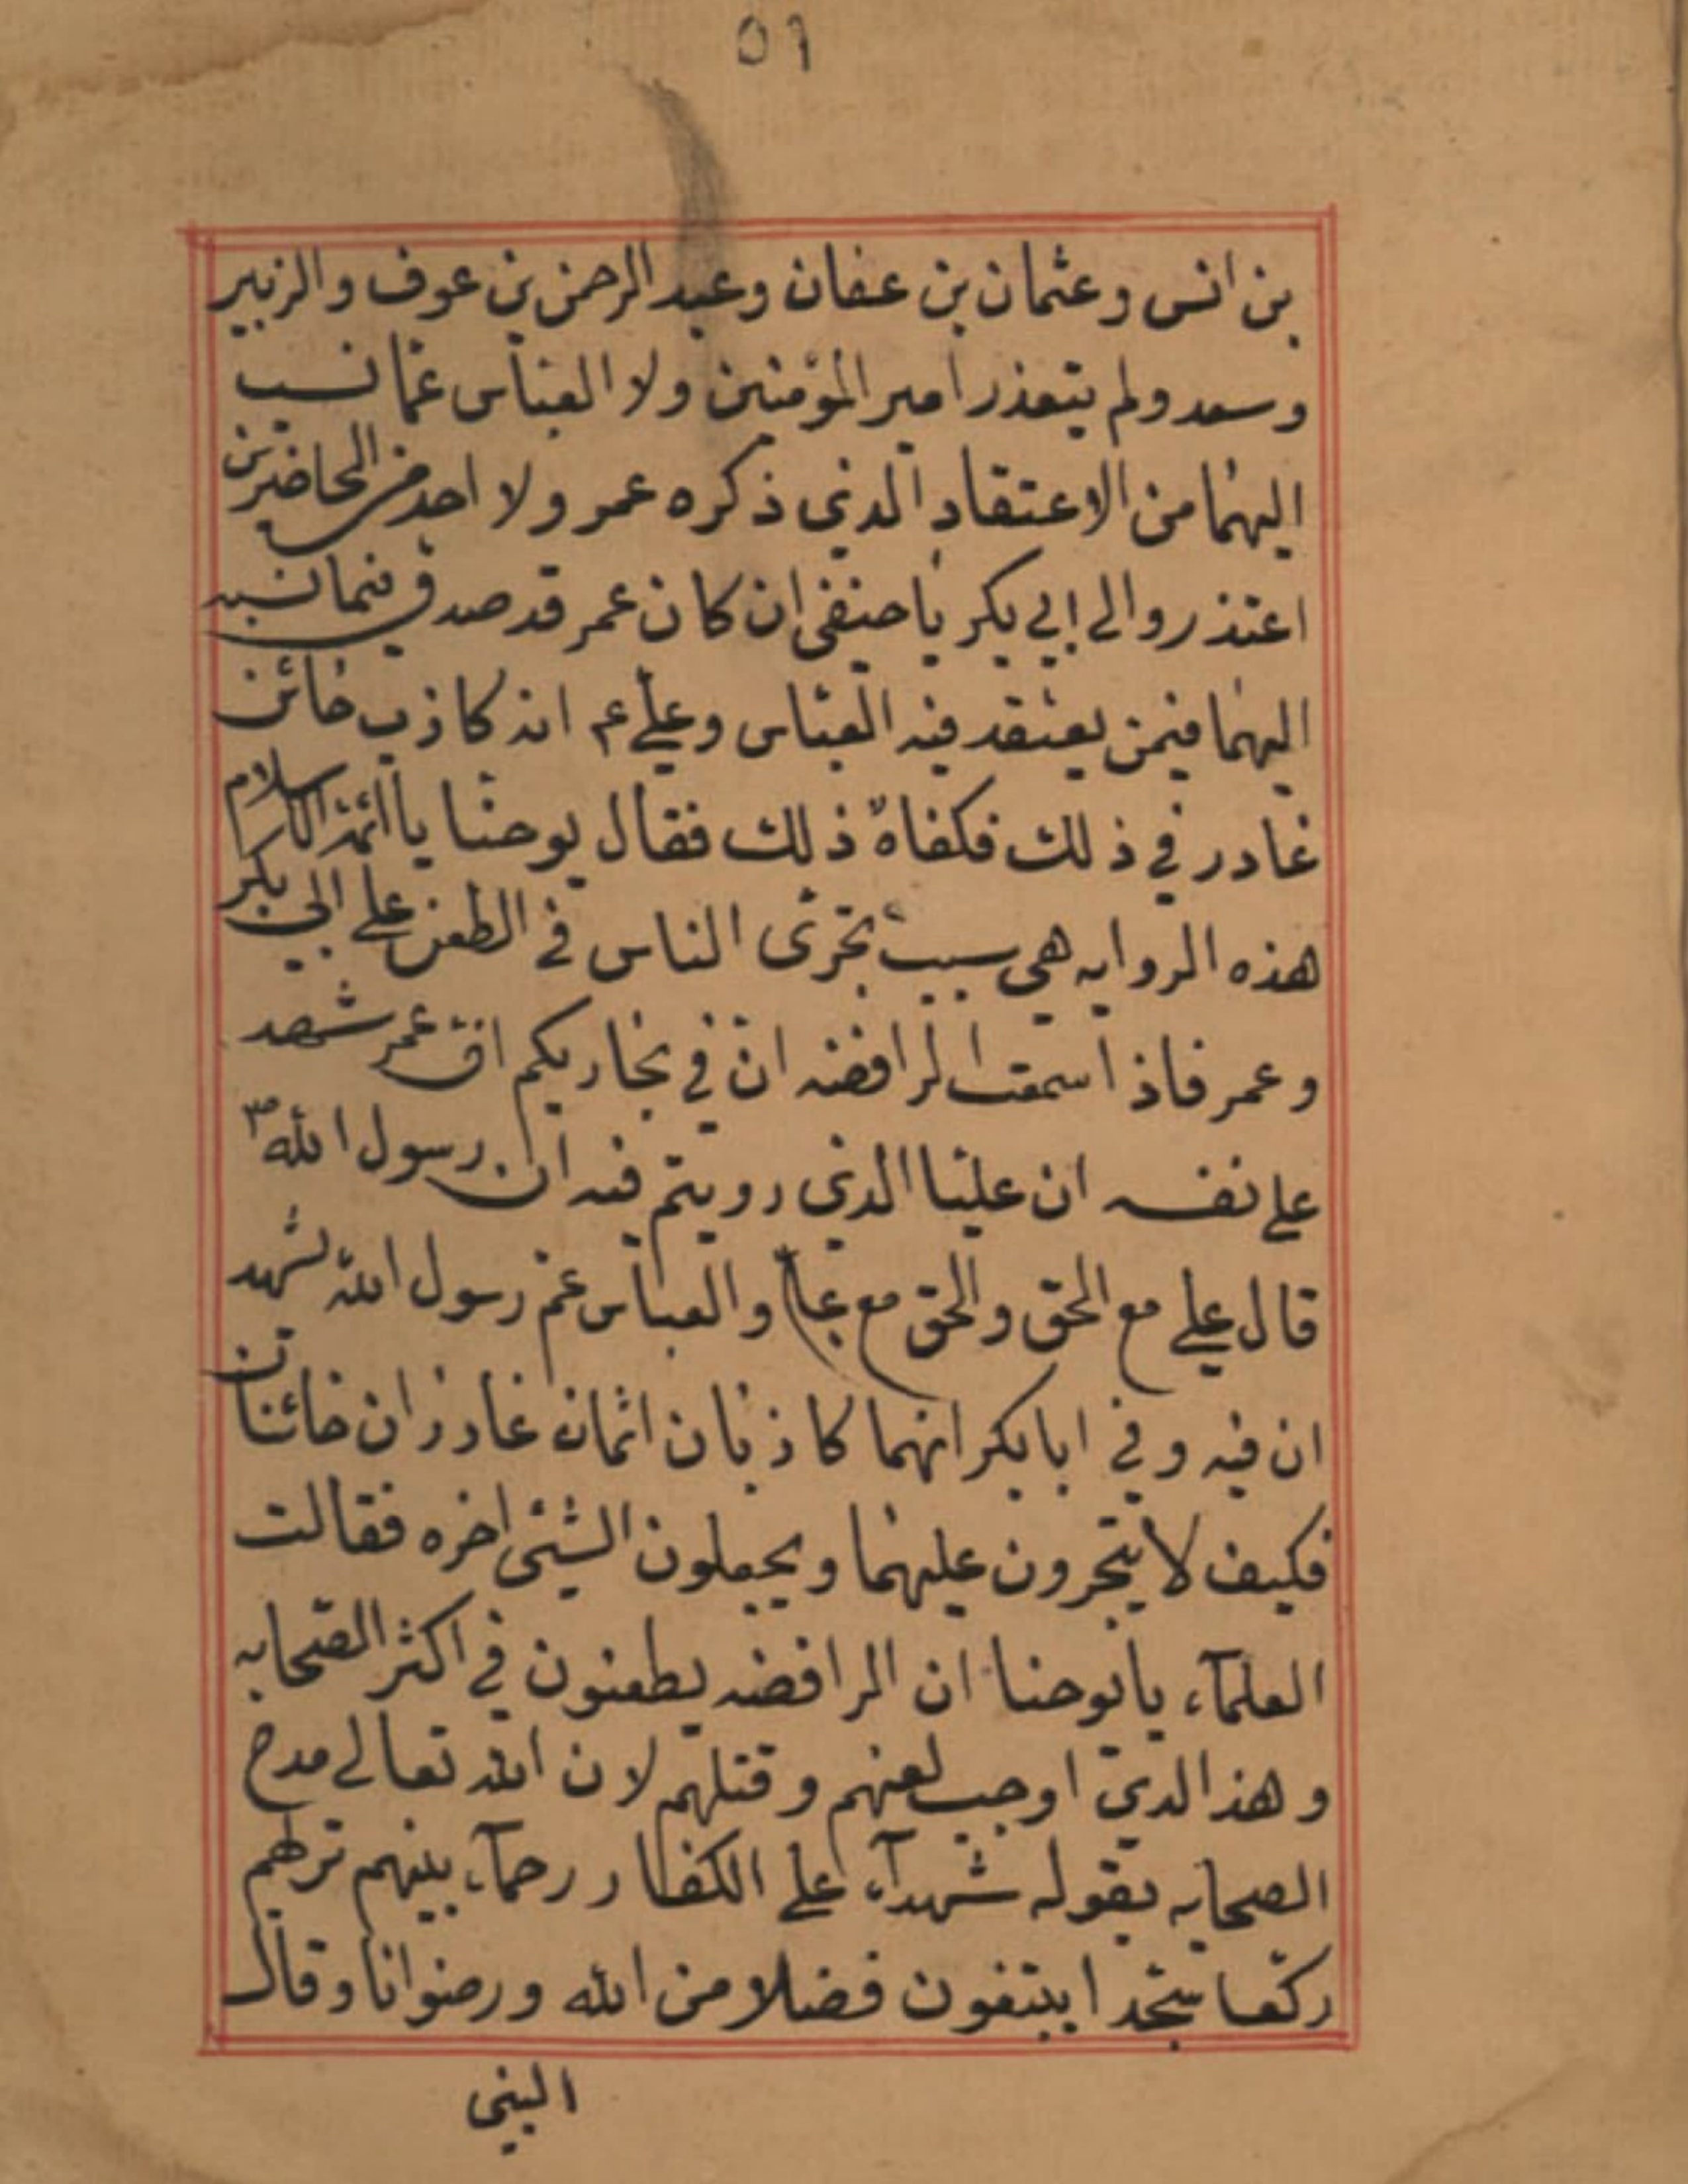 ٥٦
بن انس وعثمان بن عفان وعبد الرحمن بن عوف والزبير
وسعد ولم يتعذر امير المؤمنين ولا العباس عما نسب
اليهما من الاعتقاد الذي ذكره عمر ولا احد من الحاضرين
اعتذروا الى ابي بكر يا حنفى ان كان عمر قد صدق فيما نسبه
اليهما فيمن يعتقد فيه العباس وعلي ع انه كاذب خائن
غادر في ذلك فكفاه ذلك فقال يوحنا يا ائمة الاسلام
هذه الروايه هي سبب تجرئ الناس في الطعن على ابي بكر
وعمر فاذا سمعت الرافضه ان في بخاريكم ان عمر شهد
على نفسه ان عليا الذي رويتم فيه ان رسول الله ص
قال علي مع الحق والحق مع علي والعباس عم رسول الله شهد
ان فيه وفي ابا بكر انهما كاذبان اثمان غادران خائنان
فكيف لا يتجرون عليهما ويجعلون الشئ اخره فقالت
العلمآء يا يوحنا ان الرافضه يطعنون في اكثر الصحابه
وهذ الذي اوجب لعنهم وقتلهم لان الله تعالى مدح
الصحابه بقوله شهدآء على الكفار رحمآء بينهم ترىهم
ركعا سجدا يبتغون فضلا من الله ورضوانا وقال
النبي